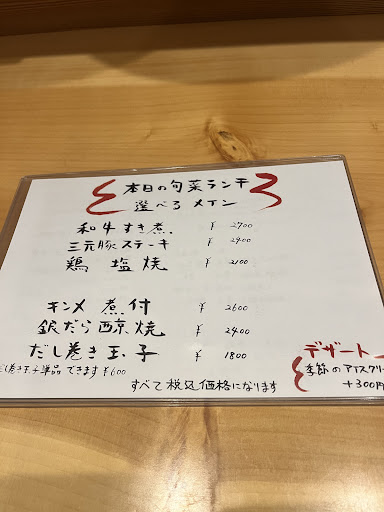 本日の旬菜ランチ
選べる メイン
和牛すき煮 ¥ 2700
三元豚ステーキ ¥ 2400
鶏 塩 焼 ¥ 2100
キンメ 煮付 ¥ 2600
銀だら西京焼 ¥ 2400
だし巻き玉子 ¥ 1800
し巻き玉子単品 できます ¥600
すべて 税込価格になります
デザート
季節のアイスクリー
+300円